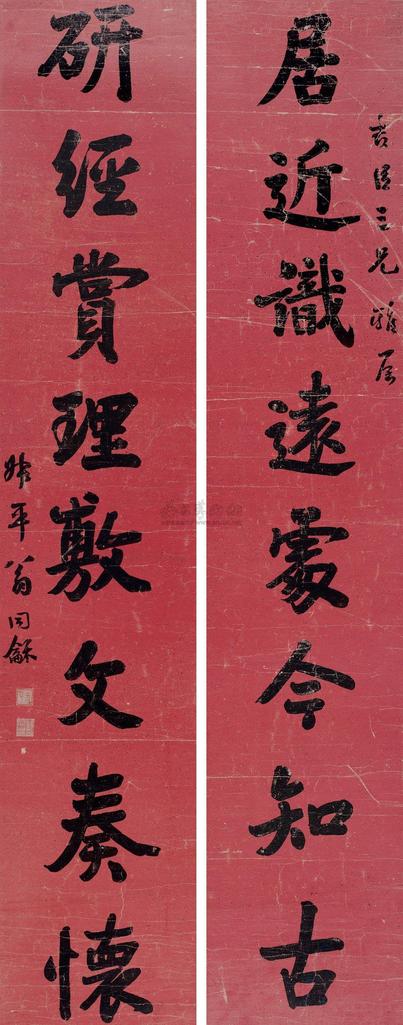 居近識遠處今知古
三兄雅屬
研經賞理敷文奏懷
叔平翁同龢